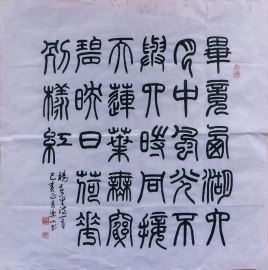 畢竟西湖六
月中風光不
與四時同接
天蓮葉無窮
碧映日荷花
別樣紅
楊萬里詩一首
己亥